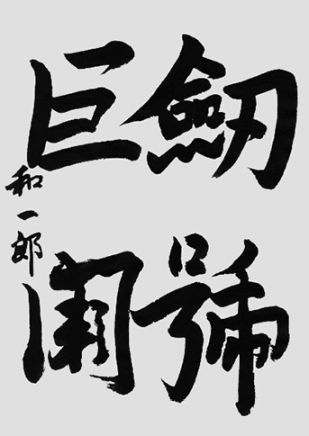 劔號
巨闕
和一郎